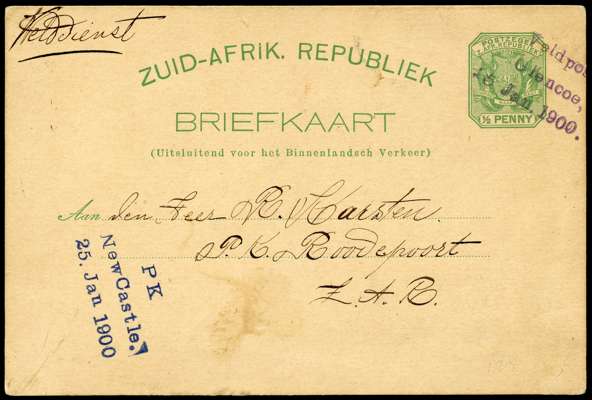 Velddienst
ZUID-AFRIK. REPUBLIEK
POSTZEGEL
Z. AFR. REPUBLIEK
½ PENNY
Veldpos
Glencoe,
Jan. 1900.
BRIEFKAART
(Uitsluitend voor het Binnenlandsch Verkeer)
Aan den Heer R. Marsten
P.K. Roodepoort
Z.A.R.
PK
NewCastle.
25. Jan 1900